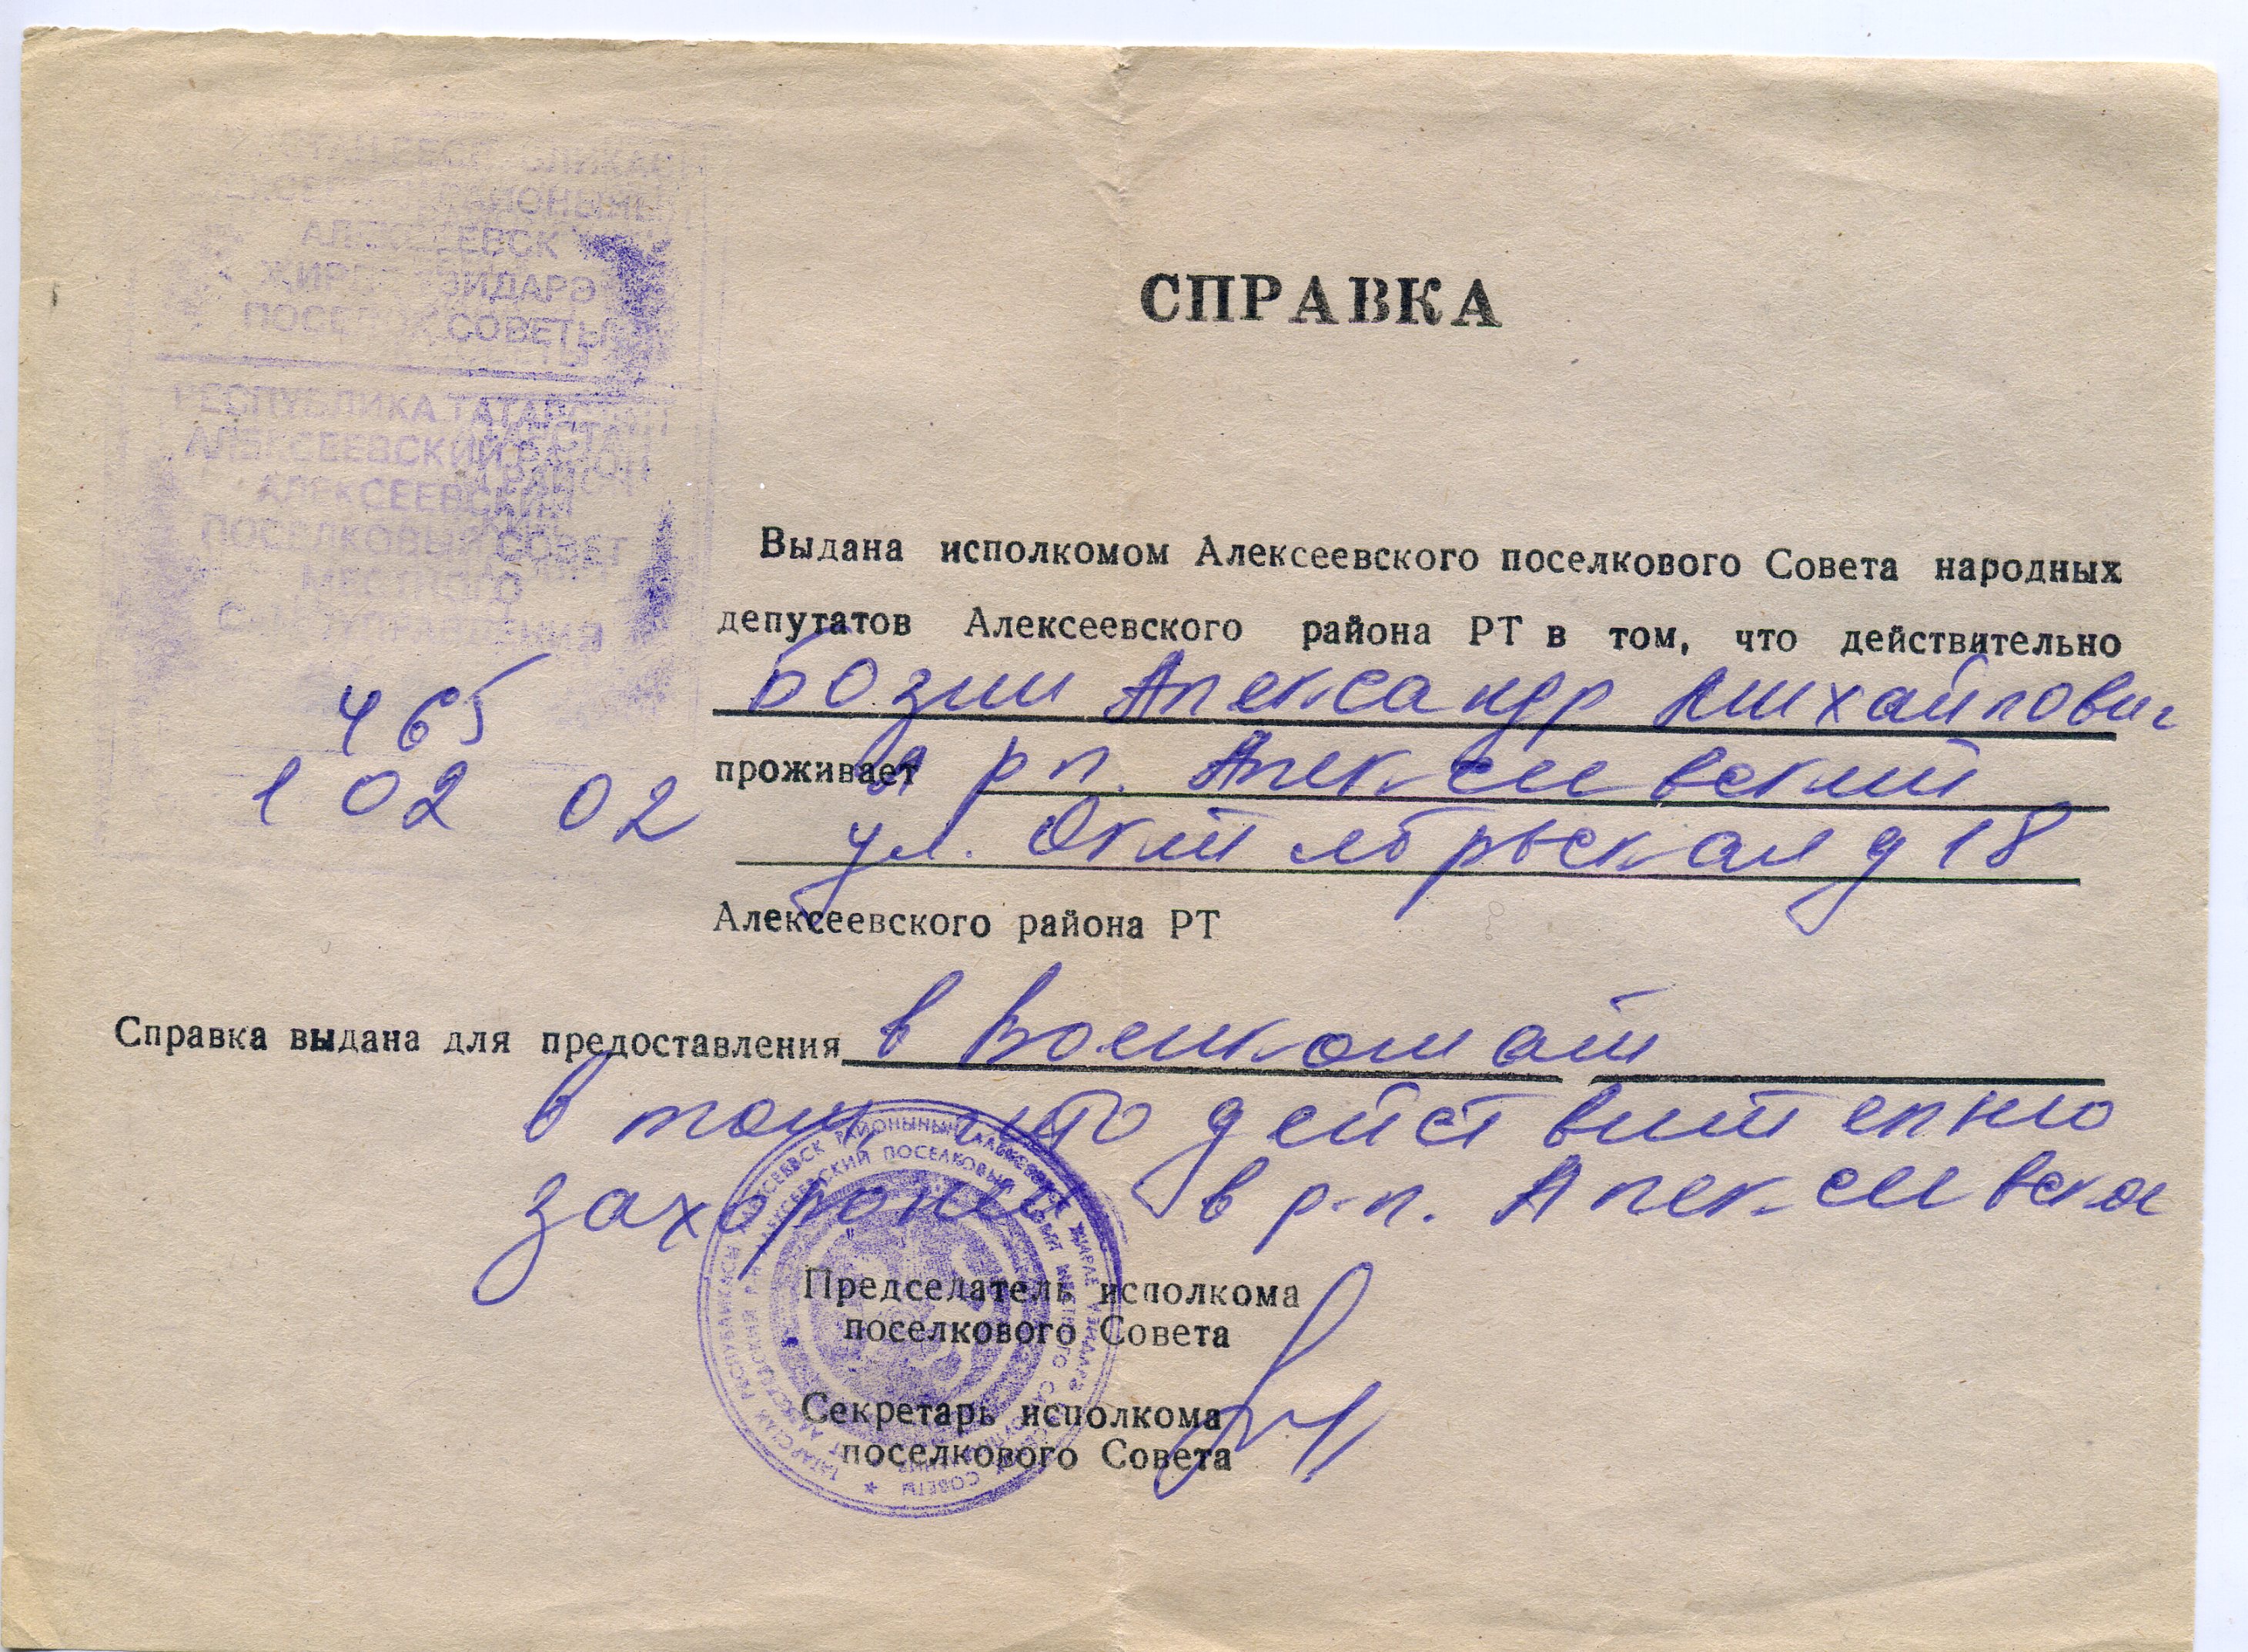 АЛЕКСЕЕВСК
ПОСЕЛОК СОВЕТЫ
РЕСПУБЛИКА ТАТАРСТАН
АЛЕКСЕЕВСКИЙ РАЙОН
АЛЕКСЕЕВСКИЙ
ПОСЕЛКОВЫЙ СОВЕТ
МЕСТНОГО
САМОУПРАВЛЕНИЯ
465
1 02 02
СПРАВКА
Выдана исполкомом Алексеевского поселкового Совета народных
депутатов Алексеевского района РТ в том, что действительно
Бозин Александр Михайлович
проживает в р п. Алексеевский
ул. Октябрьская д 18
Алексеевского района РТ
Справка выдана для предоставления в Военкомат
в том, что действительно
захоронен в р.п. Алексеевское
Председатель исполкома
поселкового Совета
Секретарь исполкома
поселкового Совета